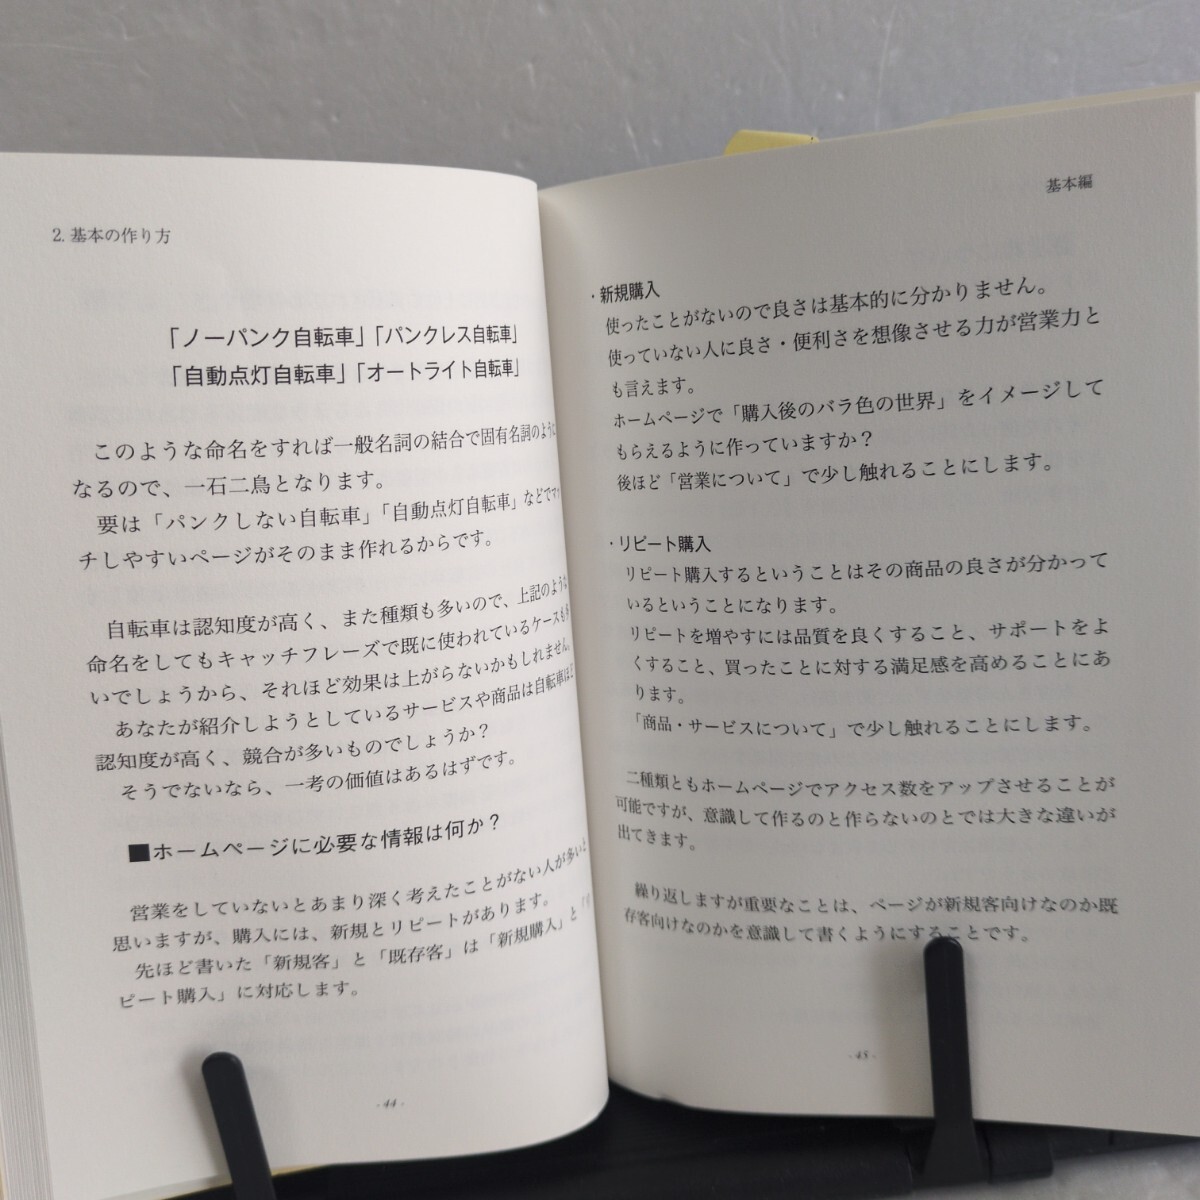 2. 基本の作り方
「ノーパンク自転車」「パンクレス自転車」
「自動点灯自転車」「オートライト自転車」
このような命名をすれば一般名詞の結合で固有名詞のように
なるので、一石二鳥となります。
要は「パンクしない自転車」「自動点灯自転車」などで
チしやすいページがそのまま作れるからです。
自転車は認知度が高く、また種類も多いので、上記のような
命名をしてもキャッチフレーズで既に使われているケースも
いでしょうから、それほど効果は上がらないかもしれません。
あなたが紹介しようとしているサービスや商品は自転車ほど
認知度が高く、競合が多いものでしょうか？
そうでないなら、一考の価値はあるはずです。
■ホームページに必要な情報は何か？
営業をしていないとあまり深く考えたことがない人が多いと
思いますが、購入には、新規とリピートがあります。
先ほど書いた「新規客」と「既存客」は「新規購入」と「
ピート購入」に対応します。
- 44 -
基本編
・新規購入
使ったことがないので良さは基本的に分かりません。
使っていない人に良さ・便利さを想像させる力が営業力と
も言えます。
ホームページで「購入後のバラ色の世界」をイメージして
もらえるように作っていますか？
後ほど「営業について」で少し触れることにします。
・リピート購入
リピート購入するということはその商品の良さが分かって
いるということになります。
リピートを増やすには品質を良くすること、サポートをよ
くすること、買ったことに対する満足感を高めることにあ
ります。
「商品・サービスについて」で少し触れることにします。
二種類ともホームページでアクセス数をアップさせることが
可能ですが、意識して作るのと作らないのとでは大きな違いが
出てきます。
繰り返しますが重要なことは、ページが新規客向けなのか既
存客向けなのかを意識して書くようにすることです。
- 45 -